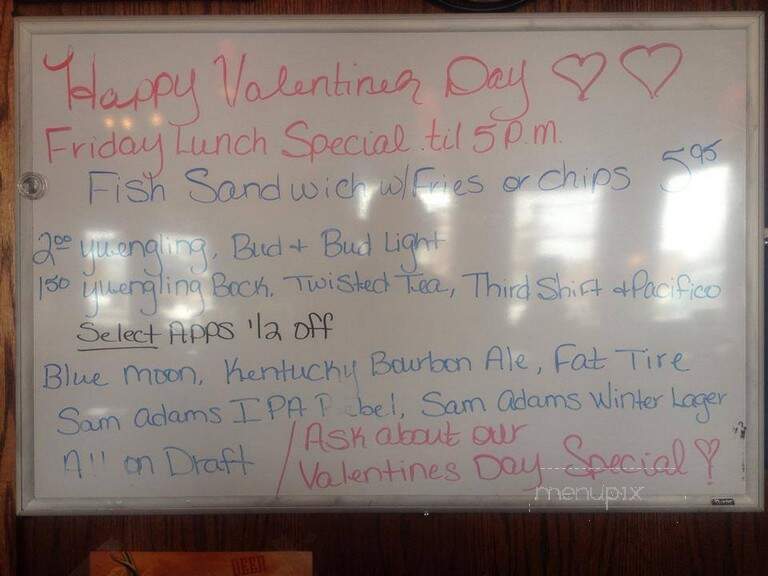 Happy Valentines Day
Friday Lunch Special til 5 P.m.
Fish Sandwich w/Fries or chips 5.95
2.00 yuengling, Bud + Bud Light
1.50 yuengling Bock, Twisted Tea, Third Shift + Pacifico
Select APPS 1/2 off
Blue moon, Kentucky Bourbon Ale, Fat Tire
Sam adams IPA bel, Sam Adams Winter Lager
All on Draft
Ask about our
Valentines Day Special
menupix
BEER